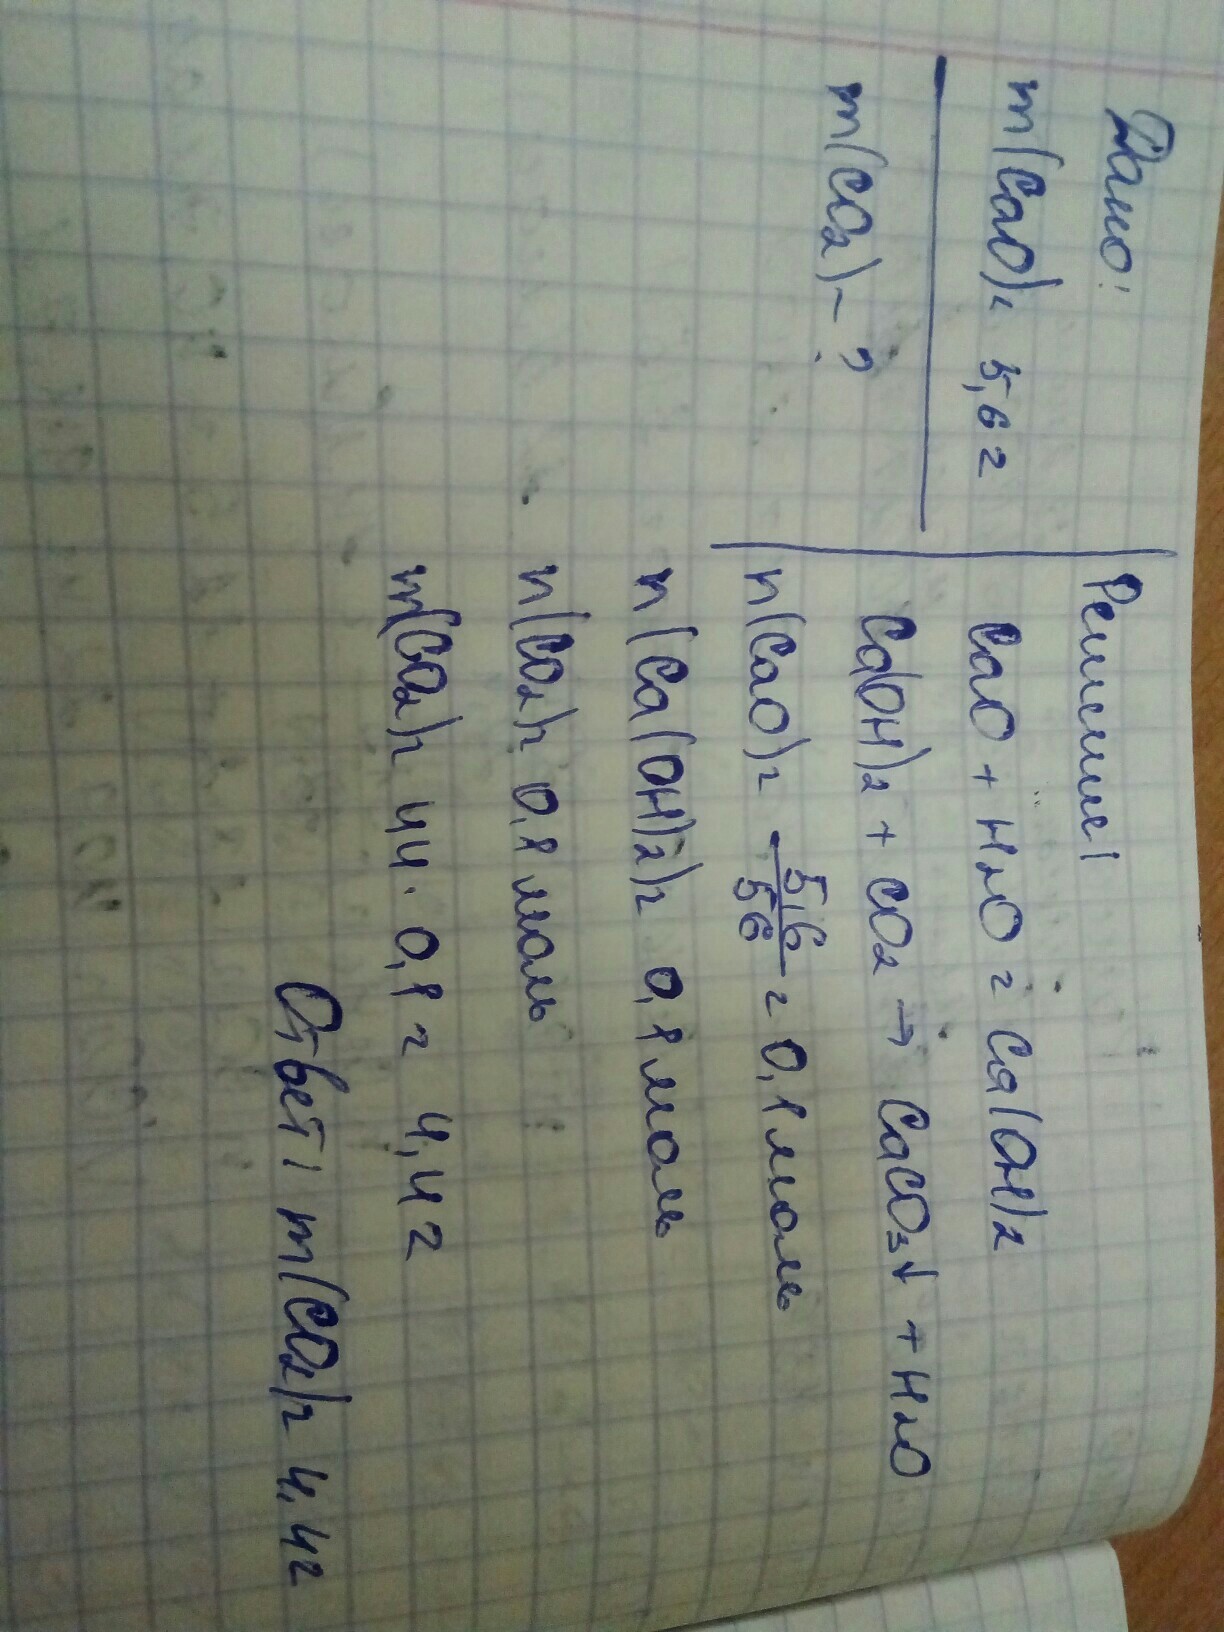 Дано:
m(CaO)= 5,6 г
m(CO₂) - ?
Решение:
CaO + H₂O = Ca(OH)₂
Ca(OH)₂ + CO₂ → CaCO₃↓ + H₂O
n(CaO) = 5,6/56 = 0,1 моль
n(Ca(OH)₂) = 0,1 моль
n(CO₂) = 0,1 моль
m(CO₂) = 44 · 0,1 = 4,4 г
Ответ: m(CO₂) = 4,4 г